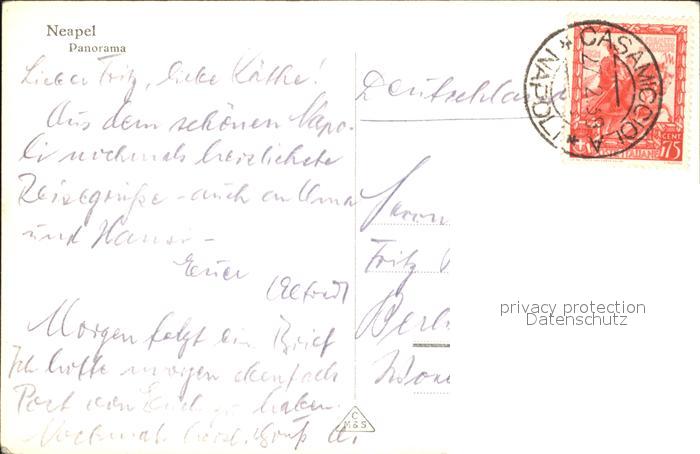 Neapel
Panorama
Lieber Fritz, liebe Käthe!
Aus dem schönen Napo-
li nochmals herzlichste
Reisegrüße - auch an Oma
und Hansi -
Euer
Alfred
Morgen folgt ein Brief
Ich hoffe morgen ebenfalls
Post von Euch zu haben.
Nochmals herzl. Gruß A.
C
M&S
Deutschland
Herrn
Fritz
Berli
CASAMICCIOLA
* NAPOLI *
POSTE ITALIANE
CENT 75
privacy protection
Datenschutz